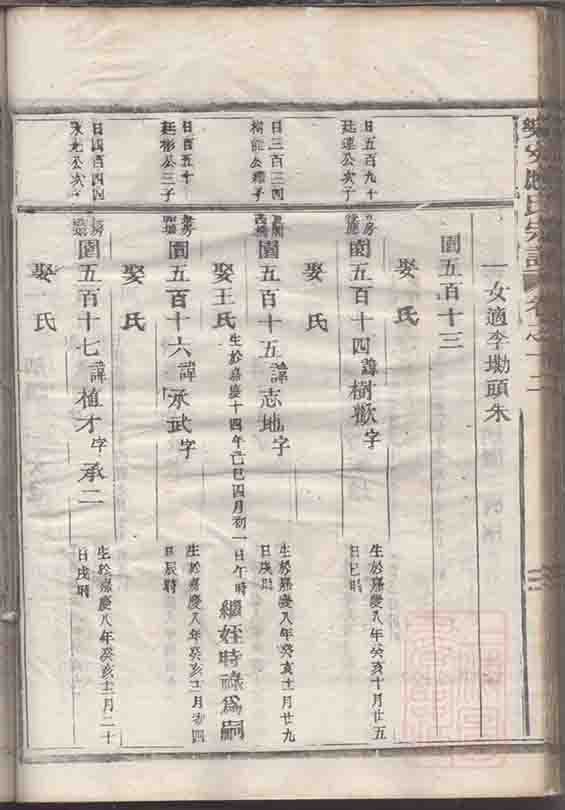 一女適李墈頭朱
園五百十三
娶氏
日五百九十
廷連公次子
園五百十四諱樹歡字
生於嘉慶八年癸亥十月廿五
日巳時
娶氏
日三百三四
園五百十五諱志地字
生於嘉慶八年癸亥十一月廿九
日戌時
娶王氏生於嘉慶十四年己巳四月初一日午時
繼姪時祿為嗣
日百五十
廷彬公三子
園五百十六諱承武字
生於嘉慶八年癸亥十二月初四
日辰時
娶氏
日四百四四
園五百十七諱植才字承二
生於嘉慶八年癸亥十二月二十
日戌時
娶氏